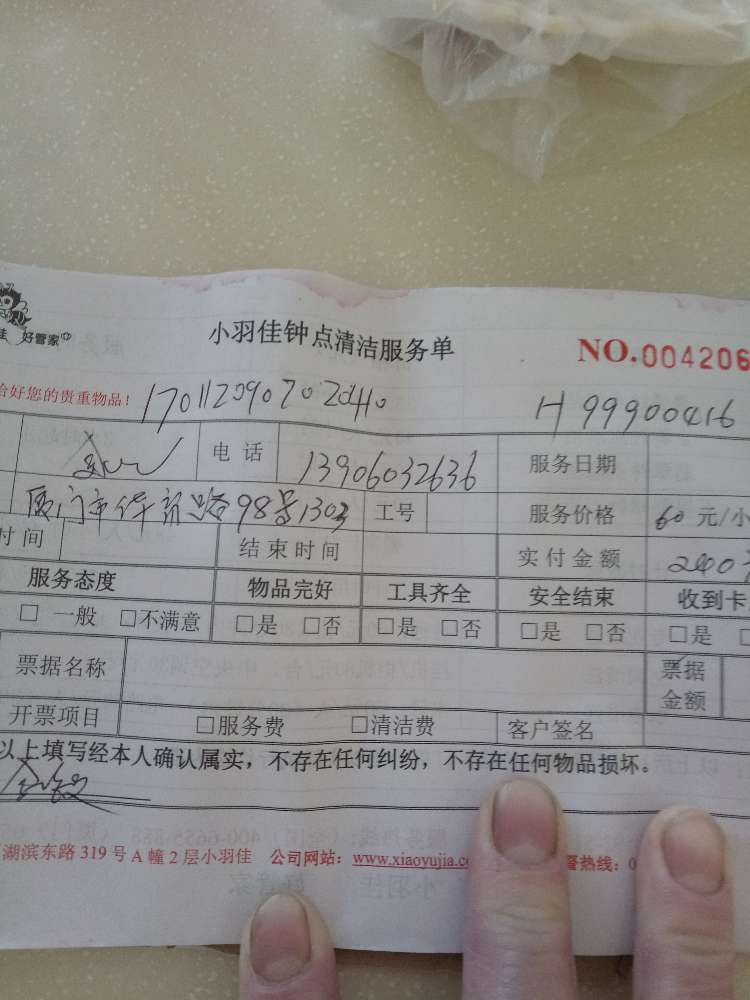 佳 好管家
小羽佳钟点清洁服务单
NO.004206
恰好您的贵重物品!
H99900416
电话 13906032636 服务日期
厦门市华新路98号1303 工号 服务价格 60元/小
时间 结束时间 实付金额 240
服务态度 物品完好 工具齐全 安全结束 收到卡
□一般 □不满意 □是 □否 □是 □否 □是 □否 □是
票据名称 票据金额
开票项目 □服务费 □清洁费 客户签名
以上填写经本人确认属实，不存在任何纠纷，不存在任何物品损坏。
湖滨东路319号A幢2层小羽佳 公司网站：www.xiaoyujia.co 督热线：0